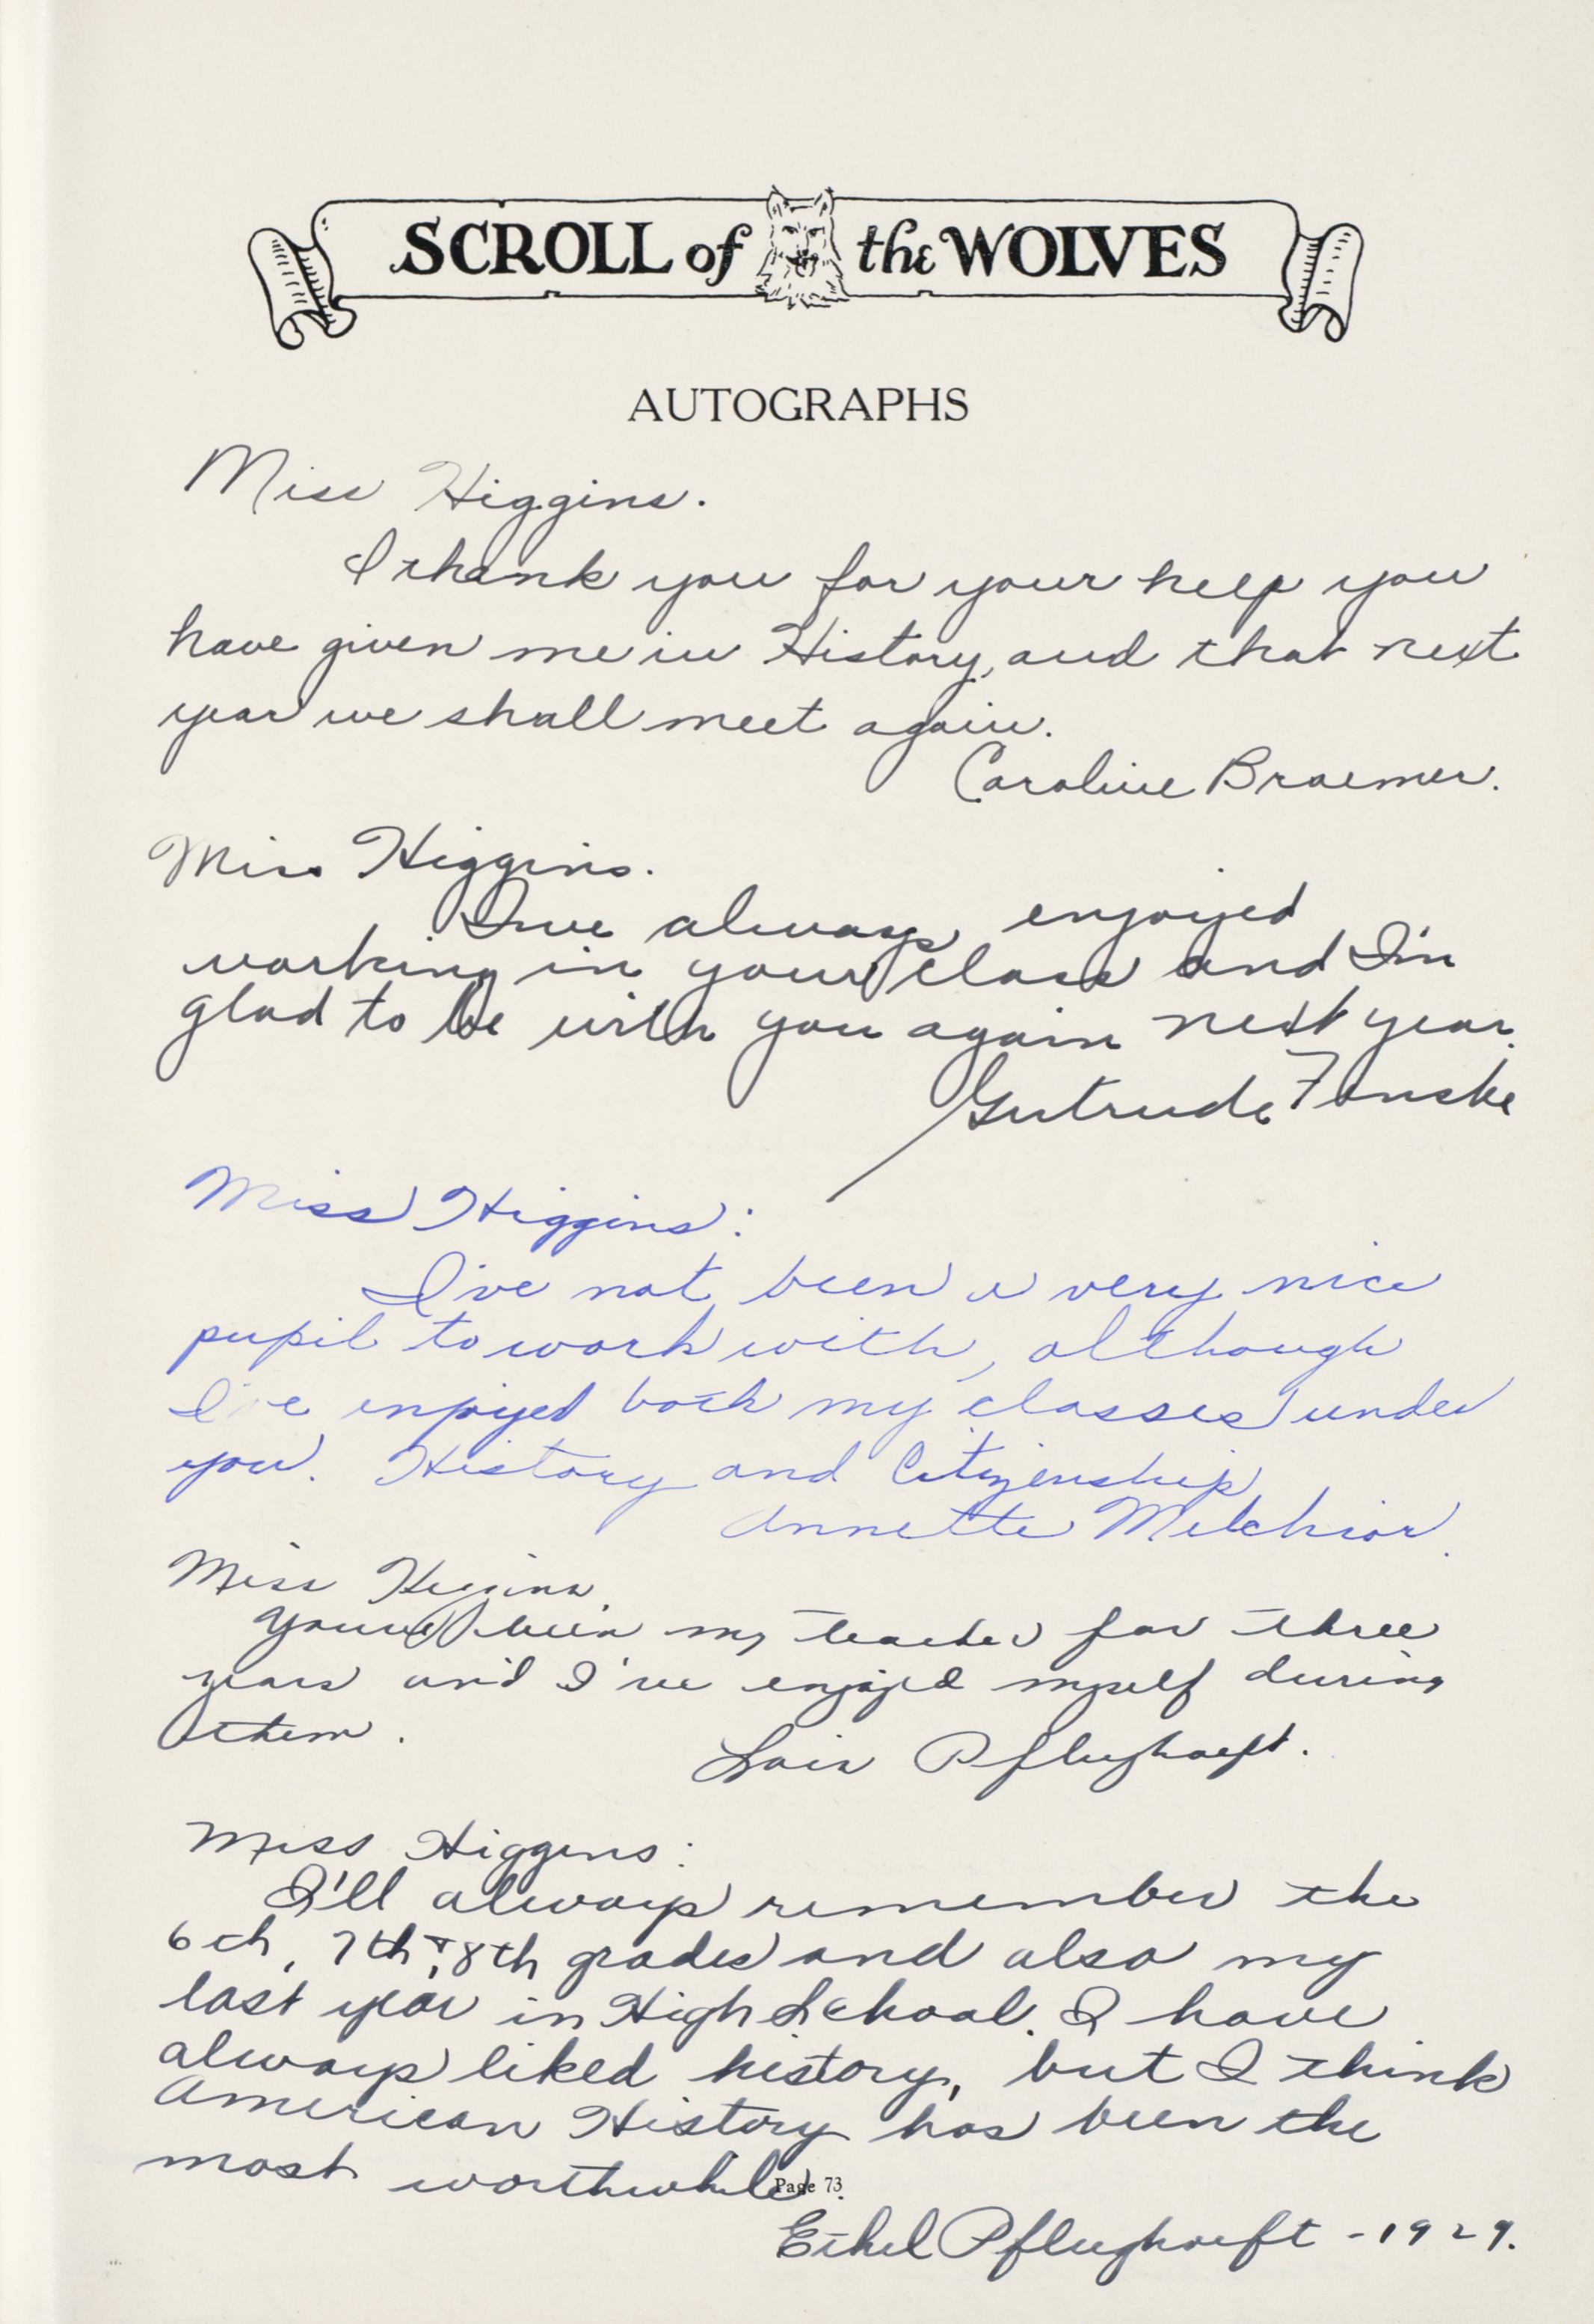 SCROLL of the WOLVES
AUTOGRAPHS
Miss Higgins.
I thank you for your help you
have given me in History, and that next
year we shall meet again.
Caroline Braemer.
Miss Higgins.
I've always enjoyed
working in your class and I'm
glad to be with you again next year.
Gertrude Fenske
Miss Higgins:
I've not been a very nice
pupil to work with, although
I've enjoyed both my classes under
you. History and Citizenship
Annette Melchior.
Miss Higgins.
You've been my teacher for three
years and I've enjoyed myself during
them.
Lois Pflughoeft.
Miss Higgins:
I'll always remember the
6th, 7th, & 8th grades and also my
last year in High School. I have
always liked history, but I think
American History has been the
most worthwhile.
Page 73
Ethel Pflughoeft - 1929.